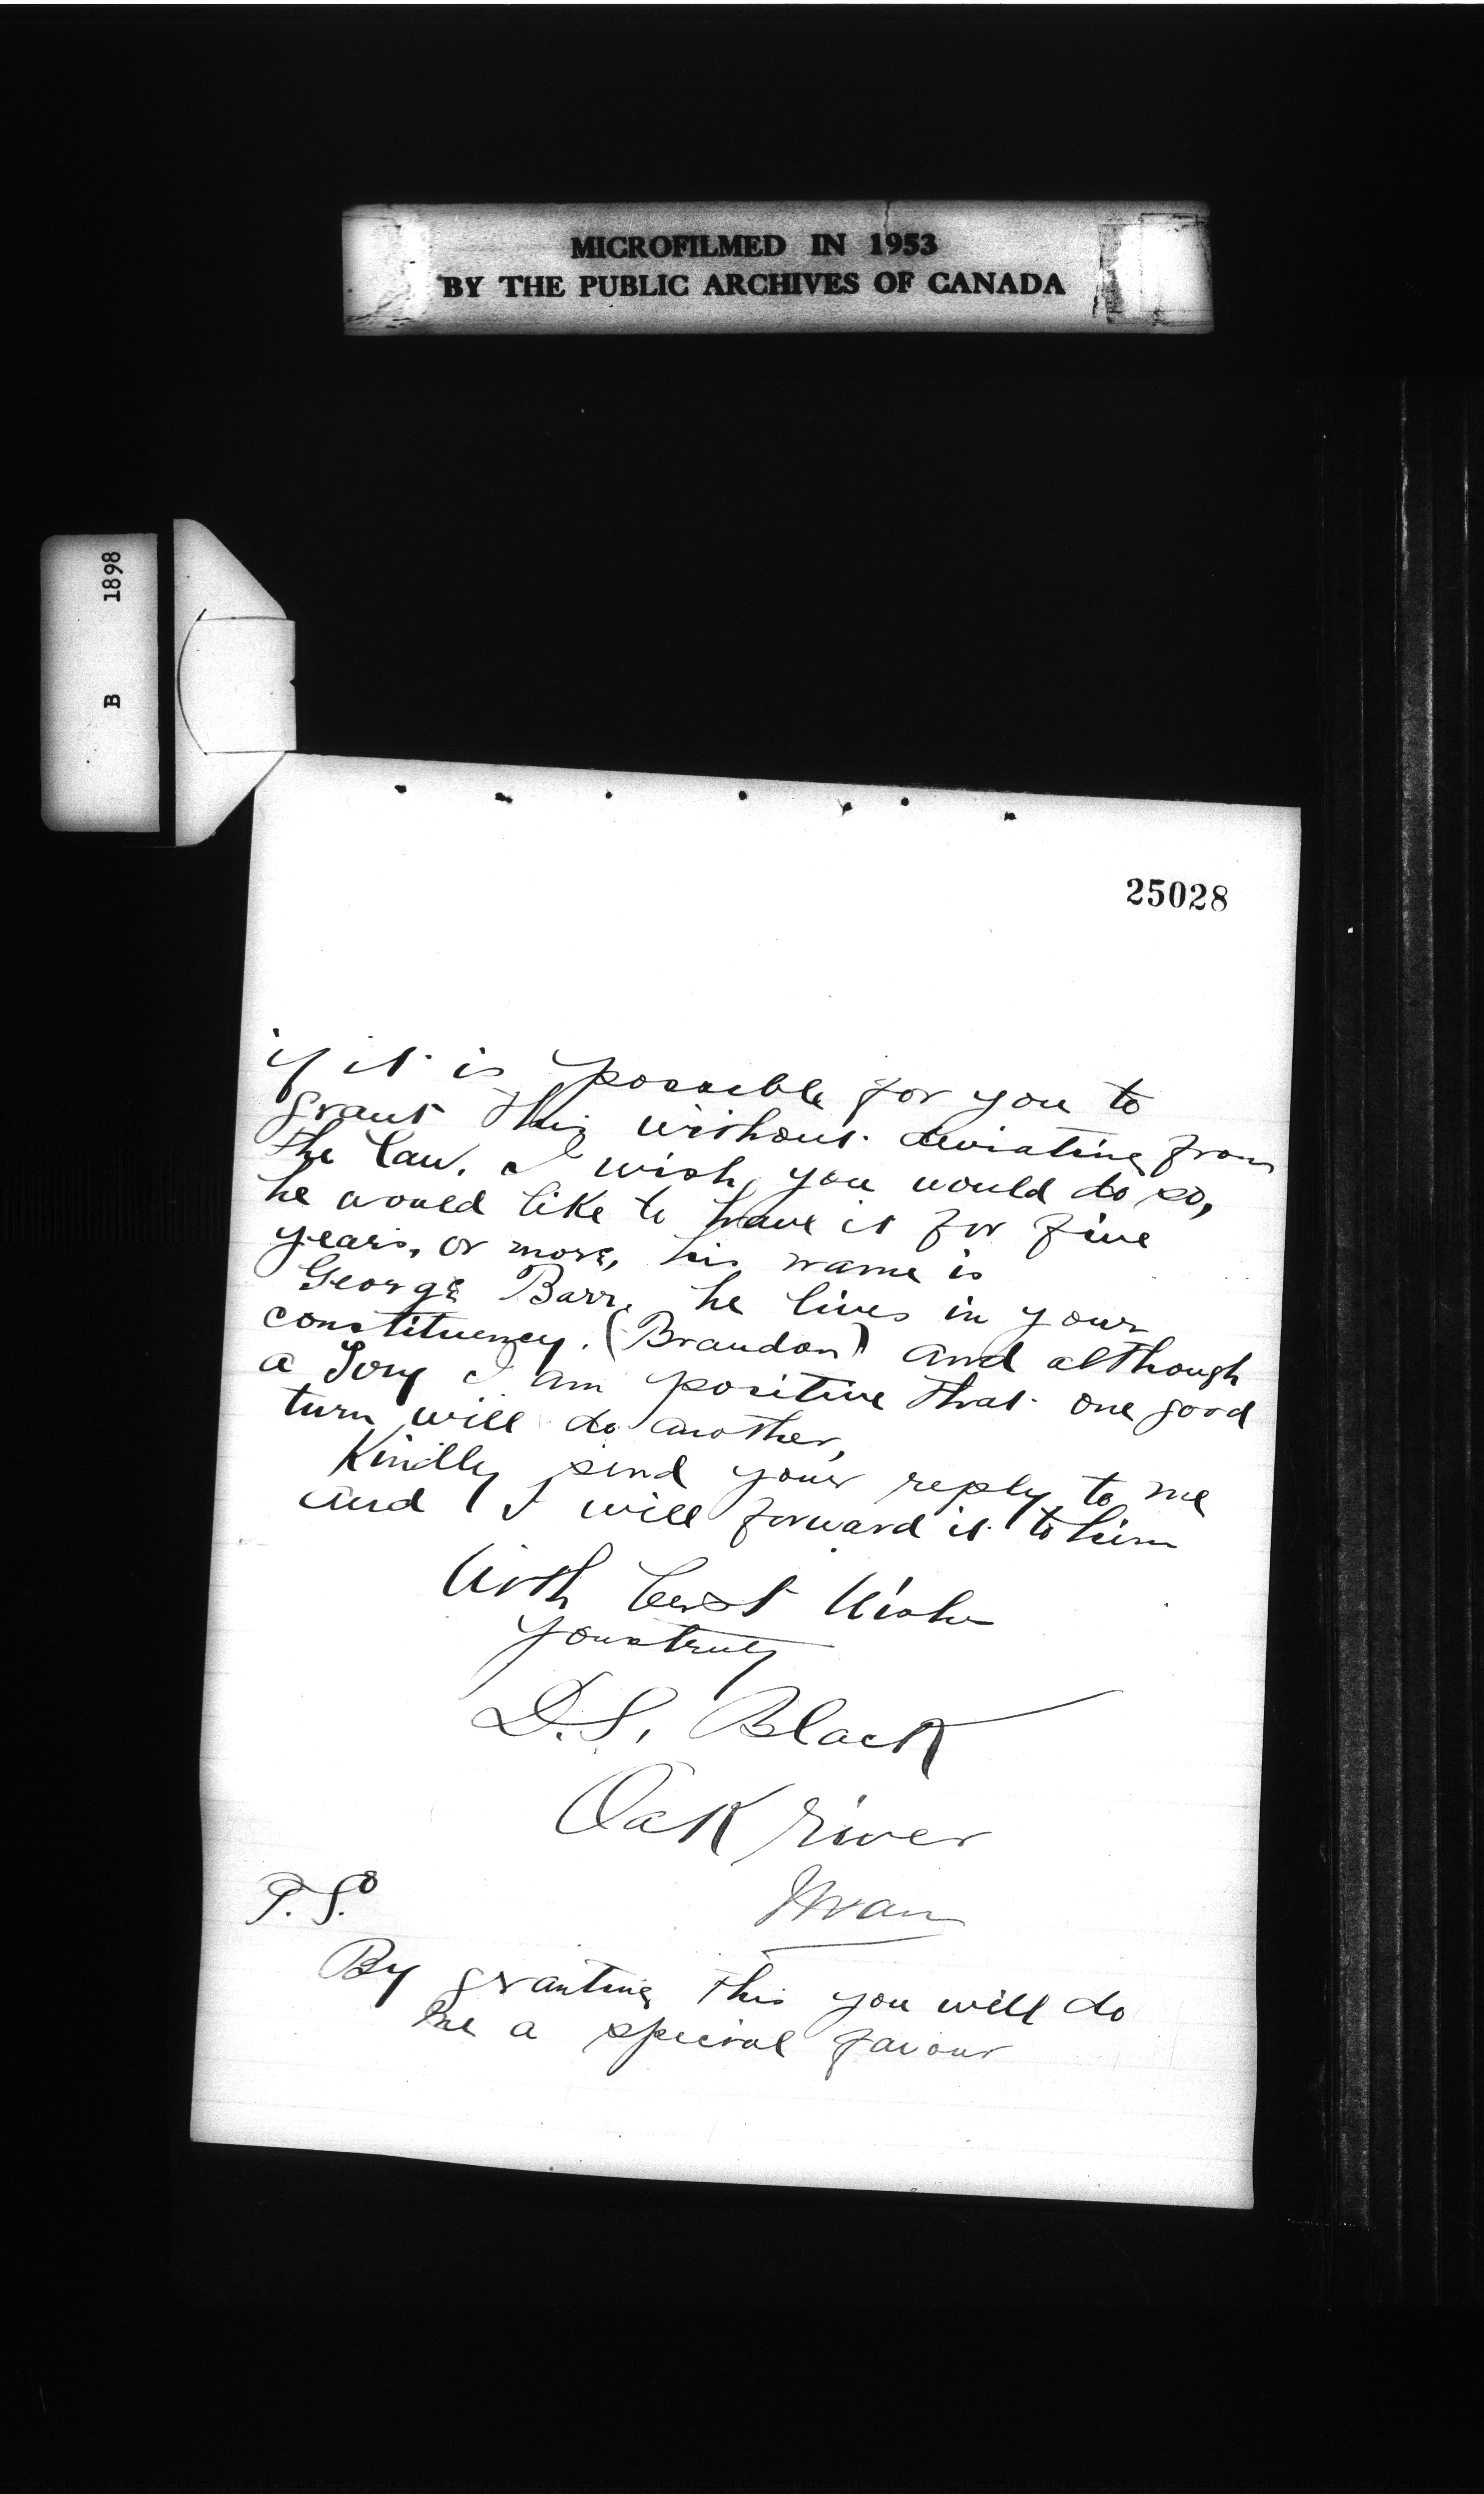 MICROFILMED IN 1953
BY THE PUBLIC ARCHIVES OF CANADA
B 1898
25028
if it is possible for you to
grant this without deviating from
the law. I wish you would do so,
he would like to have it for five
years, or more, his name is
George Barr, he lives in your
constituency. (Brandon) and although
a Tory I am positive that one good
turn will do another,
Kindly send your reply to me
and I will forward it to him
With best Wishes
yours truly
D.S. Black
Oak river
Man
P.S.
By granting this you will do
me a special favour